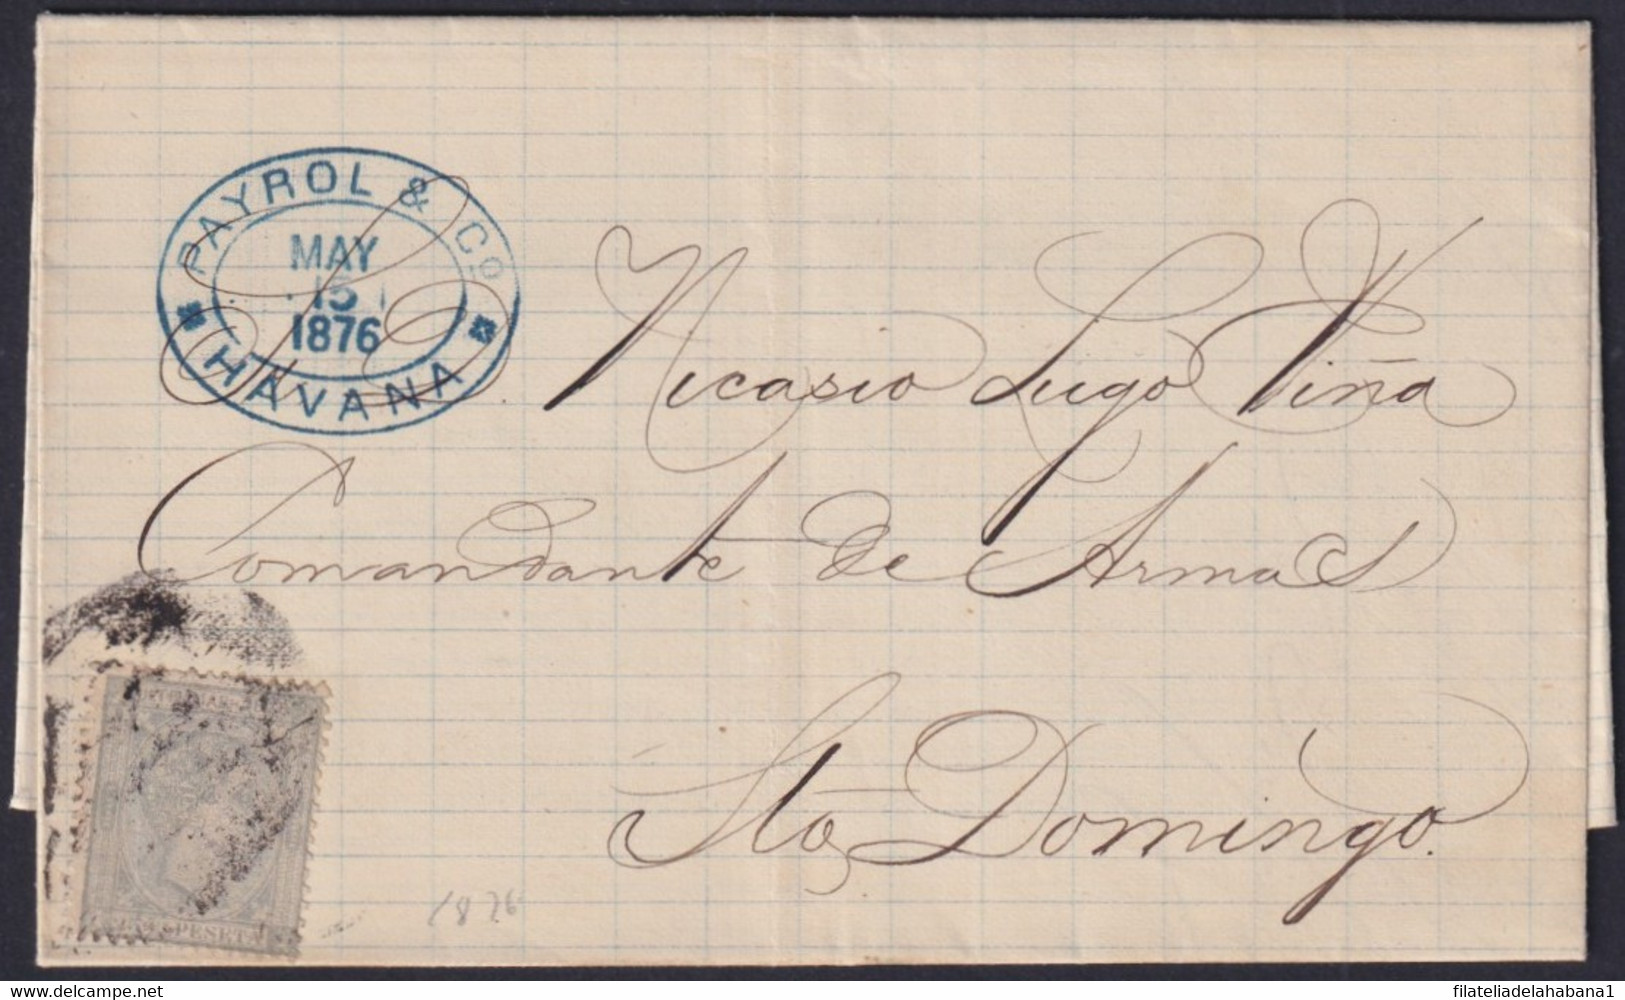 PAYROL & Co
MAY
15
1876
HAVANA
Nicasio Lugo Viña
Comandante de Armas
Sto Domingo.
PESETA
1876
filateliadelahabana1